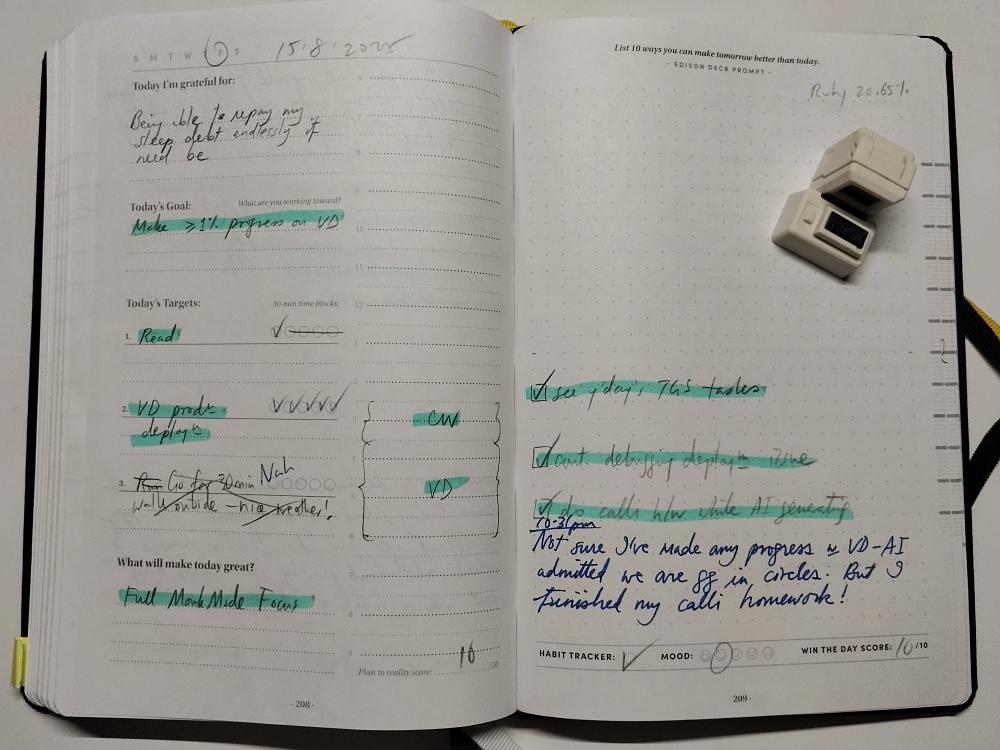 S M T W T F S 15/8/2025
Today I'm grateful for:
Being able to repay my
sleep debt endlessly if
need be
Today's Goal: What are you working toward?
Make ≥1% progress on VD
Today's Targets: 30-min time blocks:
1. Read
2. VD prod
3. Run Go for 30min Nah
walk outside – nice weather!
What will make today great?
Full Monk Mode Focus
6
7
8
9
10
11
12
1
2
3
CW
4
5
VD
6
7
8
9
Plan to reality score: 10 /10
- 208 -
List 10 ways you can make tomorrow better than today.
- EDISON DECK PROMPT -
Ruby 20.65%
see y'day's TGS tasks
cont. debugging issue
do calli h/w while AI generating
10:31pm
Not sure I've made any progress VD-AI
admitted we are gg in circles. But I
finished my calli homework!
HABIT TRACKER: MOOD: WIN THE DAY SCORE: 10/10
- 209 -